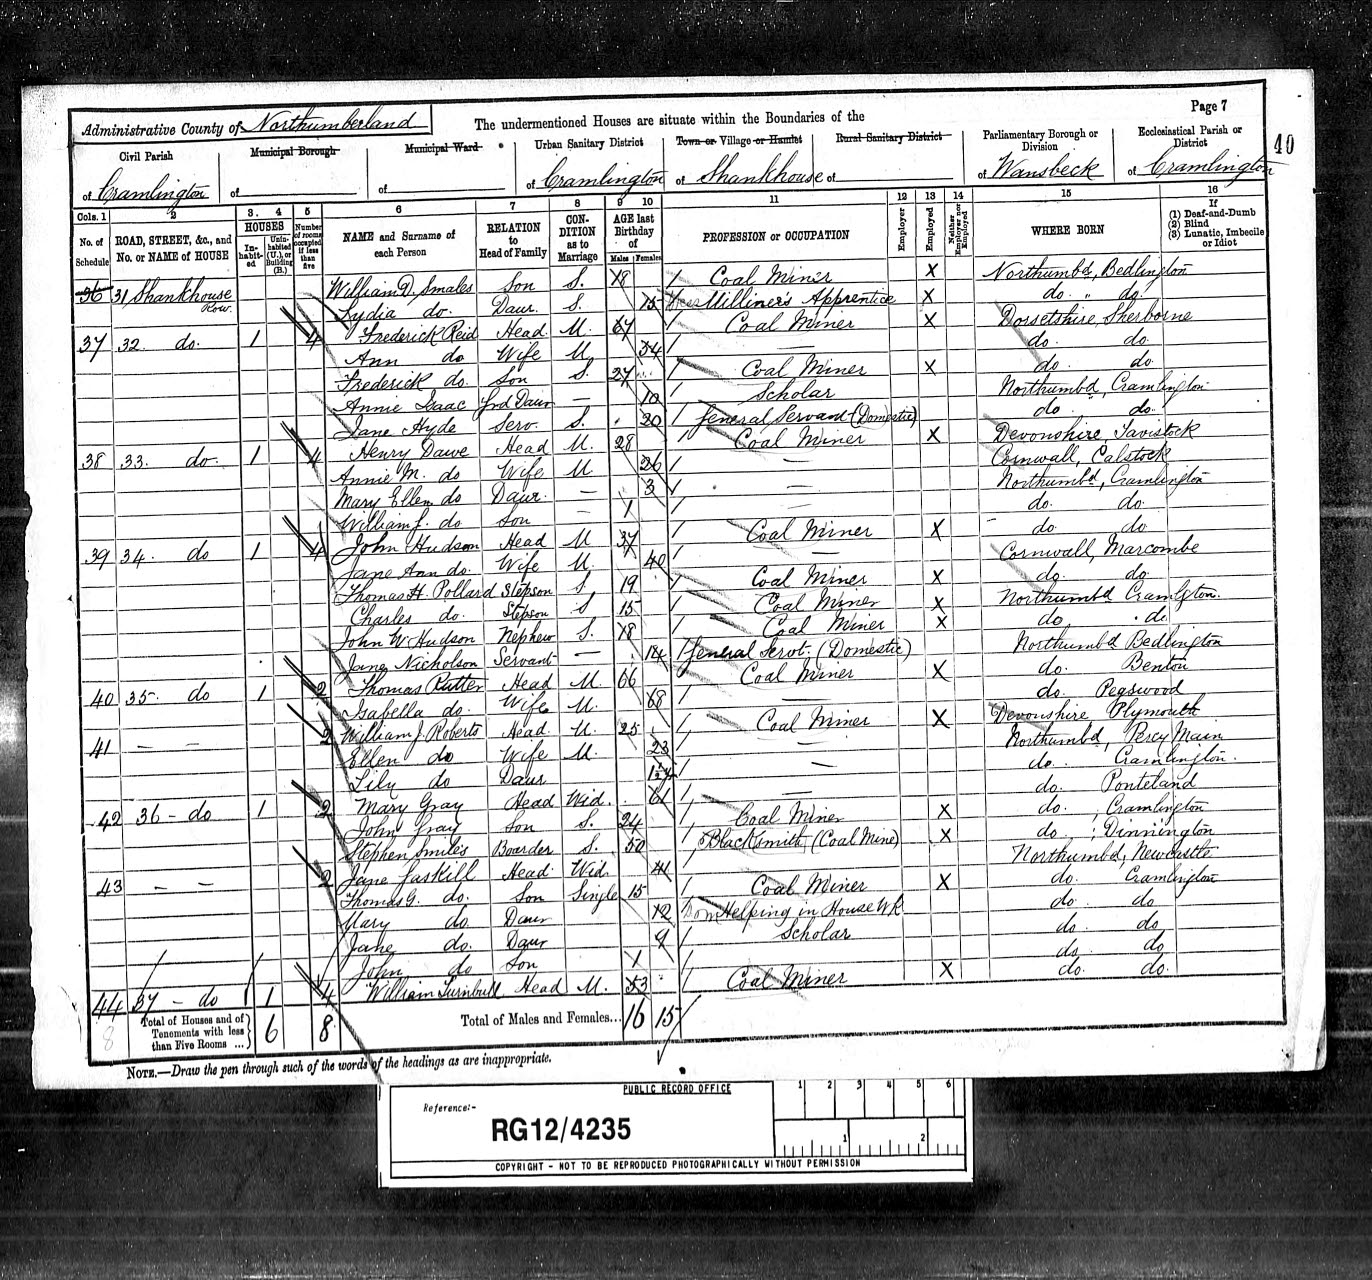 Page 7
Administrative County of Northumberland
The undermentioned Houses are situate within the Boundaries of the
40
Civil Parish of Cramlington
Municipal Borough of
Municipal Ward of
Urban Sanitary District of Cramlington
Town or Village or Hamlet of Shankhouse
Rural Sanitary District of
Parliamentary Borough or Division of Wansbeck
Ecclesiastical Parish or District of Cramlington
Cols. 1 2 3. 4 5 6 7 8 9 10 11 12 13 14 15 16
No. of Schedule
ROAD, STREET, &c., and No. or NAME of HOUSE
HOUSES In-habit-ed Unin-habited (U.), or Building (B.)
Number of rooms occupied if less than five
NAME and Surname of each Person
RELATION to Head of Family
CON-DITION as to Marriage
AGE last Birthday of Males Females
PROFESSION or OCCUPATION
Employer
Employed
Neither Employer nor Employed
WHERE BORN
If (1) Deaf-and-Dumb (2) Blind (3) Lunatic, Imbecile or Idiot
36 31 Shankhouse Row William D. Smales Son S. 18 Coal Miner X Northumbd, Bedlington
Lydia do. Daur. S. 15 Milliner's Apprentice X do. " do.
37 32. do. 1 4 Frederick Reid Head M. 67 Coal Miner X Dorsetshire, Sherborne
Ann do Wife M. 54 — do. do.
Frederick do. Son S. 27 Coal Miner X do do.
Annie Isaac Grd Daur — 10 Scholar Northumbd, Cramlington
Jane Hyde Serv. S. 20 General Servant (Domestic) do do.
38 33. do. 1 4 Henry Dawe Head M. 28 Coal Miner X Devonshire, Tavistock
Annie M. do Wife M 26 — Cornwall, Calstock
Mary Ellen do Daur. — 3 — Northumbd, Cramlington
William J. do Son — 1 do. do.
39 34. do 1 4 John Hudson Head M 37 Coal Miner X do do
Jane Ann do. Wife M. 40 — Cornwall, Marcombe
Thomas H. Pollard Stepson S 19 Coal Miner X do. do.
Charles do. Stepson S 15 Coal Miner X Northumbd Cramlgton.
John W. Hudson Nephew S. 18 Coal Miner X do do
Jane Nicholson Servant — 14 General Servt. (Domestic) Northumbd Bedlington
40 35. do 1 2 Thomas Rutter Head M. 66 Coal Miner X do. Benton
Isabella do. Wife M. 68 do. Pegswood
41 — — 2 William J. Roberts Head M. 25 Coal Miner X Devonshire Plymouth
Ellen do Wife M 23 — Northumbd, Percy Main
Lily do Daur — do. Cramlington.
42 36 — do 1 2 Mary Gray Head Wid. 61 — do. Ponteland
John Gray Son S. 24 Coal Miner X do. , Cramlington
Stephen Smiles Boarder S. 50 Blacksmith (Coal Mine) X do , Dinnington
43 — — 2 Jane Gaskill Head Wid. 41 Northumbd, Newcastle
Thomas G. do. Son Single 15 Coal Miner X do. Cramlington
Mary do. Daur 12 Helping in House Wk do. do
Jane do. Daur 9 Scholar do do
John do Son 1 do. do
44 37 — do 1 4 William Turnbull Head M. 53 Coal Miner X do do.
8 Total of Houses and of Tenements with less than Five Rooms ... 6 8 Total of Males and Females... 16 15
NOTE.—Draw the pen through such of the words of the headings as are inappropriate.
PUBLIC RECORD OFFICE
1 2 3 4 5 6
Reference:-
RG12/4235
1 2
COPYRIGHT - NOT TO BE REPRODUCED PHOTOGRAPHICALLY WITHOUT PERMISSION